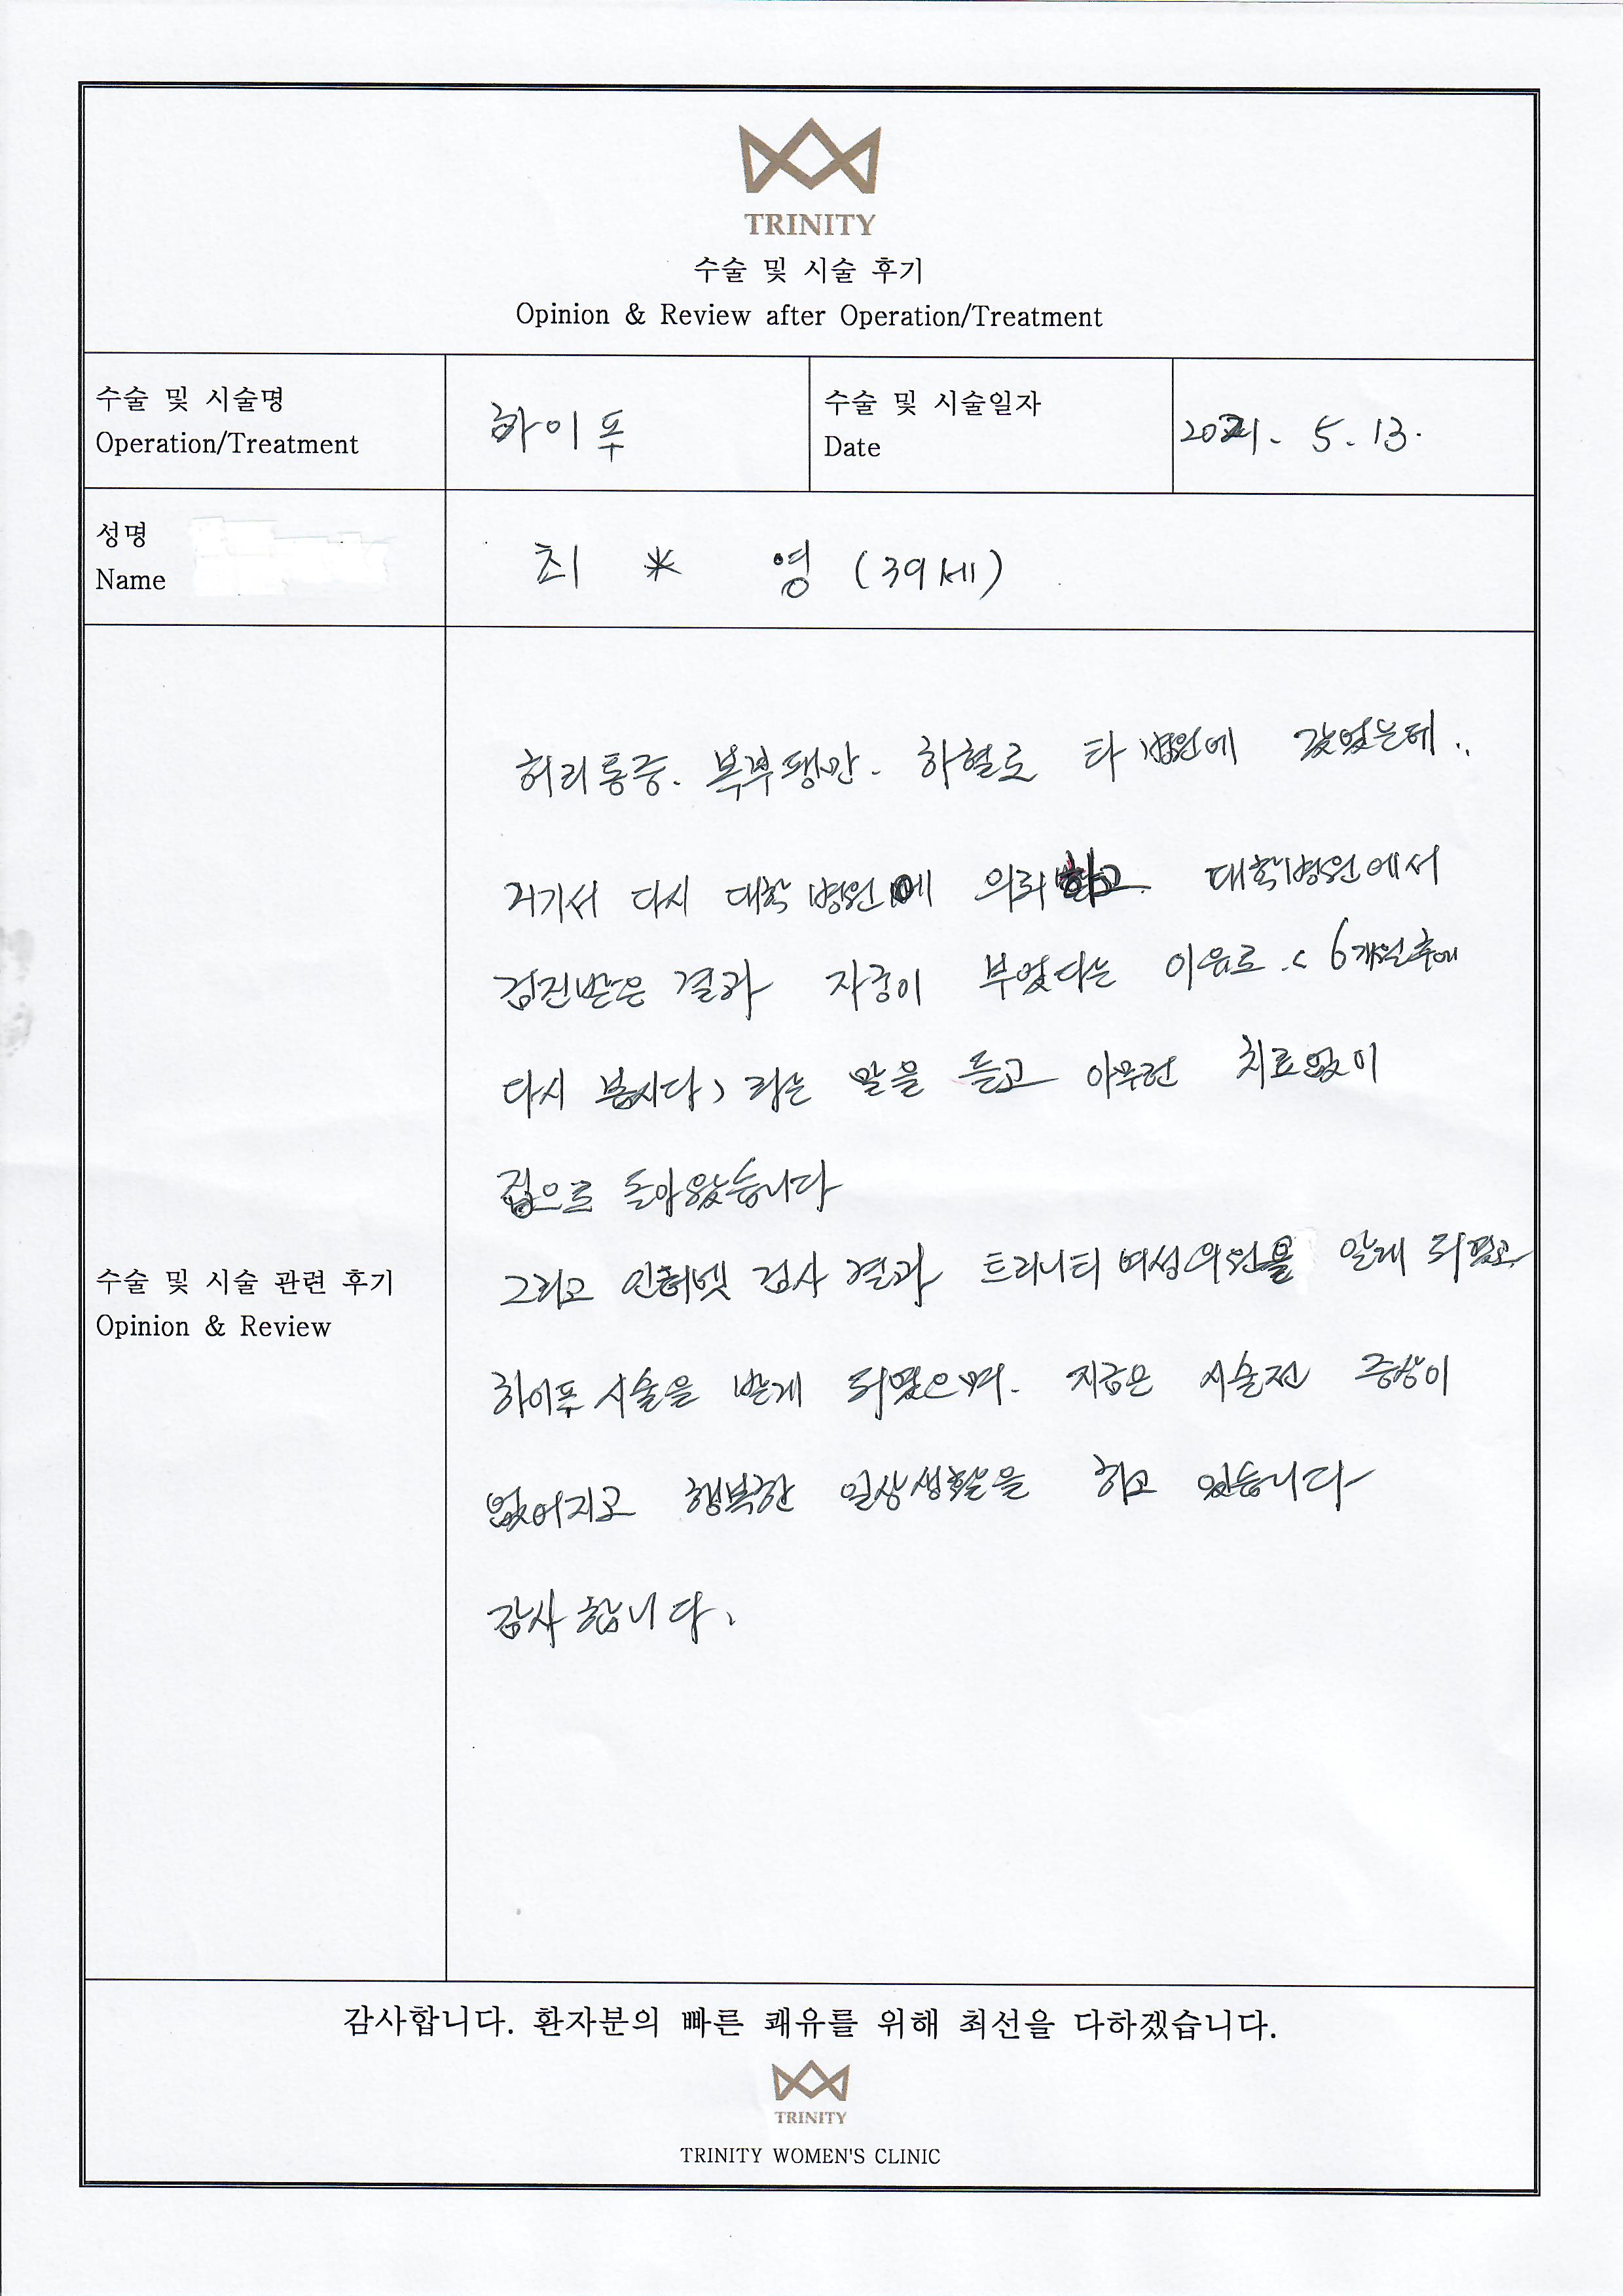 TRINITY
수술 및 시술 후기
Opinion & Review after Operation/Treatment
수술 및 시술명
Operation/Treatment
하이푸
수술 및 시술일자
Date
2021. 5. 13.
성명
Name
최 * 영 (39세)
허리통증. 복부팽만. 하혈로 타 병원에 갔었는데..
거기서 다시 대학 병원에 의뢰하고 대학병원에서
검진받은 결과 자궁이 부었다는 이유로 < 6개월후에
다시 봅시다> 라는 말을 듣고 아무런 치료없이
집으로 돌아왔습니다
그리고 인터넷 검사 결과 트리니티 여성의원을 알게 되었고
하이푸 시술을 받게 되었으며. 지금은 시술전 증상이
없어지고 행복한 일상생활을 하고 있습니다
감사합니다.
수술 및 시술 관련 후기
Opinion & Review
감사합니다. 환자분의 빠른 쾌유를 위해 최선을 다하겠습니다.
TRINITY
TRINITY WOMEN'S CLINIC